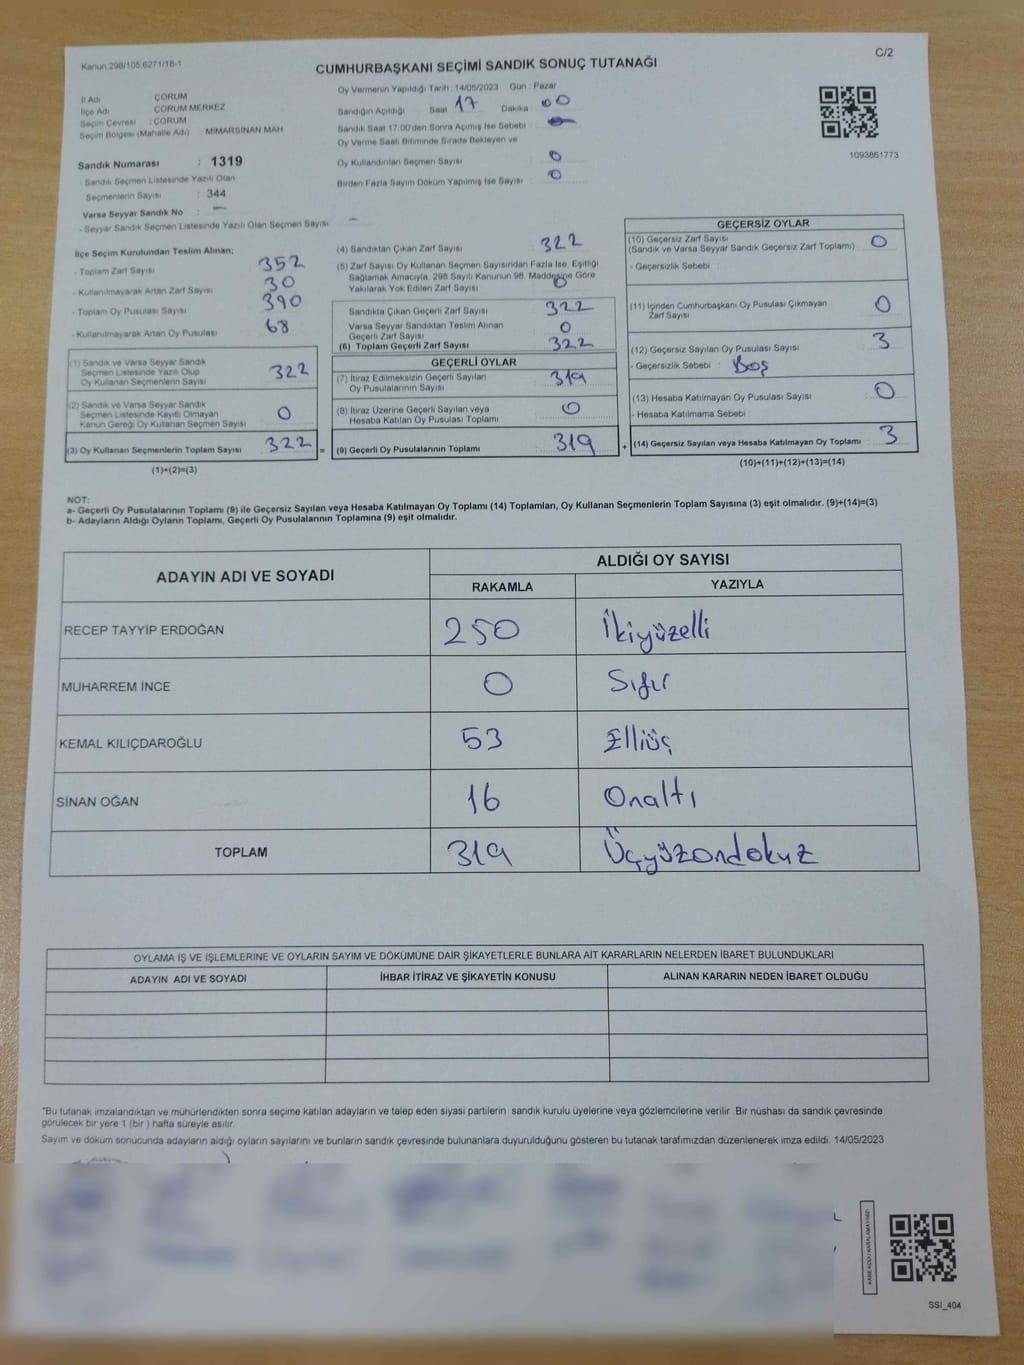 Kanun 298/105,6271/18-1
C/2
CUMHURBAŞKANI SEÇİMİ SANDIK SONUÇ TUTANAĞI
İl Adı : ÇORUM
İlçe Adı : ÇORUM MERKEZ
Seçim Çevresi : ÇORUM
Seçim Bölgesi (Mahalle Adı) : MIMARSINAN MAH
Sandık Numarası : 1319
- Sandık Seçmen Listesinde Yazılı Olan
Seçmenlerin Sayısı : 344
Varsa Seyyar Sandık No : –
- Seyyar Sandık Seçmen Listesinde Yazılı Olan Seçmen Sayısı –
Oy Vermenin Yapıldığı Tarih : 14/05/2023 Gün : Pazar
Sandığın Açıldığı Saat 17 Dakika 00
Sandık Saat 17.00'den Sonra Açılmış İse Sebebi :
Oy Verme Saati Bitiminde Sırada Bekleyen ve
Oy Kullandırılan Seçmen Sayısı : 0
Birden Fazla Sayım Döküm Yapılmış İse Sayısı : 0
1093861773
İlçe Seçim Kurulundan Teslim Alınan;
- Toplam Zarf Sayısı 352
- Kullanılmayarak Artan Zarf Sayısı 30
- Toplam Oy Pusulası Sayısı 390
- Kullanılmayarak Artan Oy Pusulası 68
(1) Sandık ve Varsa Seyyar Sandık
Seçmen Listesinde Yazılı Olup
Oy Kullanan Seçmenlerin Sayısı 322
(2) Sandık ve Varsa Seyyar Sandık
Seçmen Listesinde Kayıtlı Olmayan
Kanun Gereği Oy Kullanan Seçmen Sayısı 0
(3) Oy Kullanan Seçmenlerin Toplam Sayısı 322 =
(1)+(2)=(3)
(4) Sandıktan Çıkan Zarf Sayısı 322
(5) Zarf Sayısı Oy Kullanan Seçmen Sayısından Fazla İse, Eşitliği
Sağlamak Amacıyla, 298 Sayılı Kanunun 98. Maddesine Göre
Yakılarak Yok Edilen Zarf Sayısı 0
Sandıkta Çıkan Geçerli Zarf Sayısı 322
Varsa Seyyar Sandıktan Teslim Alınan
Geçerli Zarf Sayısı 0
(6) Toplam Geçerli Zarf Sayısı 322
GEÇERLİ OYLAR
(7) İtiraz Edilmeksizin Geçerli Sayılan
Oy Pusulalarının Sayısı 319
(8) İtiraz Üzerine Geçerli Sayılan veya
Hesaba Katılan Oy Pusulası Toplamı 0
(9) Geçerli Oy Pusulalarının Toplamı 319 +
GEÇERSİZ OYLAR
(10) Geçersiz Zarf Sayısı
(Sandık ve Varsa Seyyar Sandık Geçersiz Zarf Toplamı) 0
- Geçersizlik Sebebi :
(11) İçinden Cumhurbaşkanı Oy Pusulası Çıkmayan
Zarf Sayısı 0
(12) Geçersiz Sayılan Oy Pusulası Sayısı 3
- Geçersizlik Sebebi : Boş
(13) Hesaba Katılmayan Oy Pusulası Sayısı 0
- Hesaba Katılmama Sebebi :
(14) Geçersiz Sayılan veya Hesaba Katılmayan Oy Toplamı 3
(10)+(11)+(12)+(13)=(14)
NOT:
a- Geçerli Oy Pusulalarının Toplamı (9) ile Geçersiz Sayılan veya Hesaba Katılmayan Oy Toplamı (14) Toplamları, Oy Kullanan Seçmenlerin Toplam Sayısına (3) eşit olmalıdır. (9)+(14)=(3)
b- Adayların Aldığı Oyların Toplamı, Geçerli Oy Pusulalarının Toplamına (9) eşit olmalıdır.
ADAYIN ADI VE SOYADI
ALDIĞI OY SAYISI
RAKAMLA YAZIYLA
RECEP TAYYİP ERDOĞAN 250 İkiyüzelli
MUHARREM İNCE 0 Sıfır
KEMAL KILIÇDAROĞLU 53 Elliüç
SİNAN OĞAN 16 Onaltı
TOPLAM 319 Üçyüzondokuz
OYLAMA İŞ VE İŞLEMLERINE VE OYLARIN SAYIM VE DÖKÜMÜNE DAİR ŞİKAYETLERLE BUNLARA AİT KARARLARIN NELERDEN İBARET BULUNDUKLARI
ADAYIN ADI VE SOYADI İHBAR İTİRAZ VE ŞİKAYETİN KONUSU ALINAN KARARIN NEDEN İBARET OLDUĞU
*Bu tutanak imzalandıktan ve mühürlendikten sonra seçime katılan adayların ve talep eden siyasi partilerin sandık kurulu üyelerine veya gözlemcilerine verilir. Bir nüshası da sandık çevresinde
görülecek bir yere 1 (bir) hafta süreyle asılır.
Sayım ve döküm sonucunda adayların aldığı oyların sayılarını ve bunların sandık çevresinde bulunanlara duyurulduğunu gösteren bu tutanak tarafımızdan düzenlenerek imza edildi. 14/05/2023
SSI_404